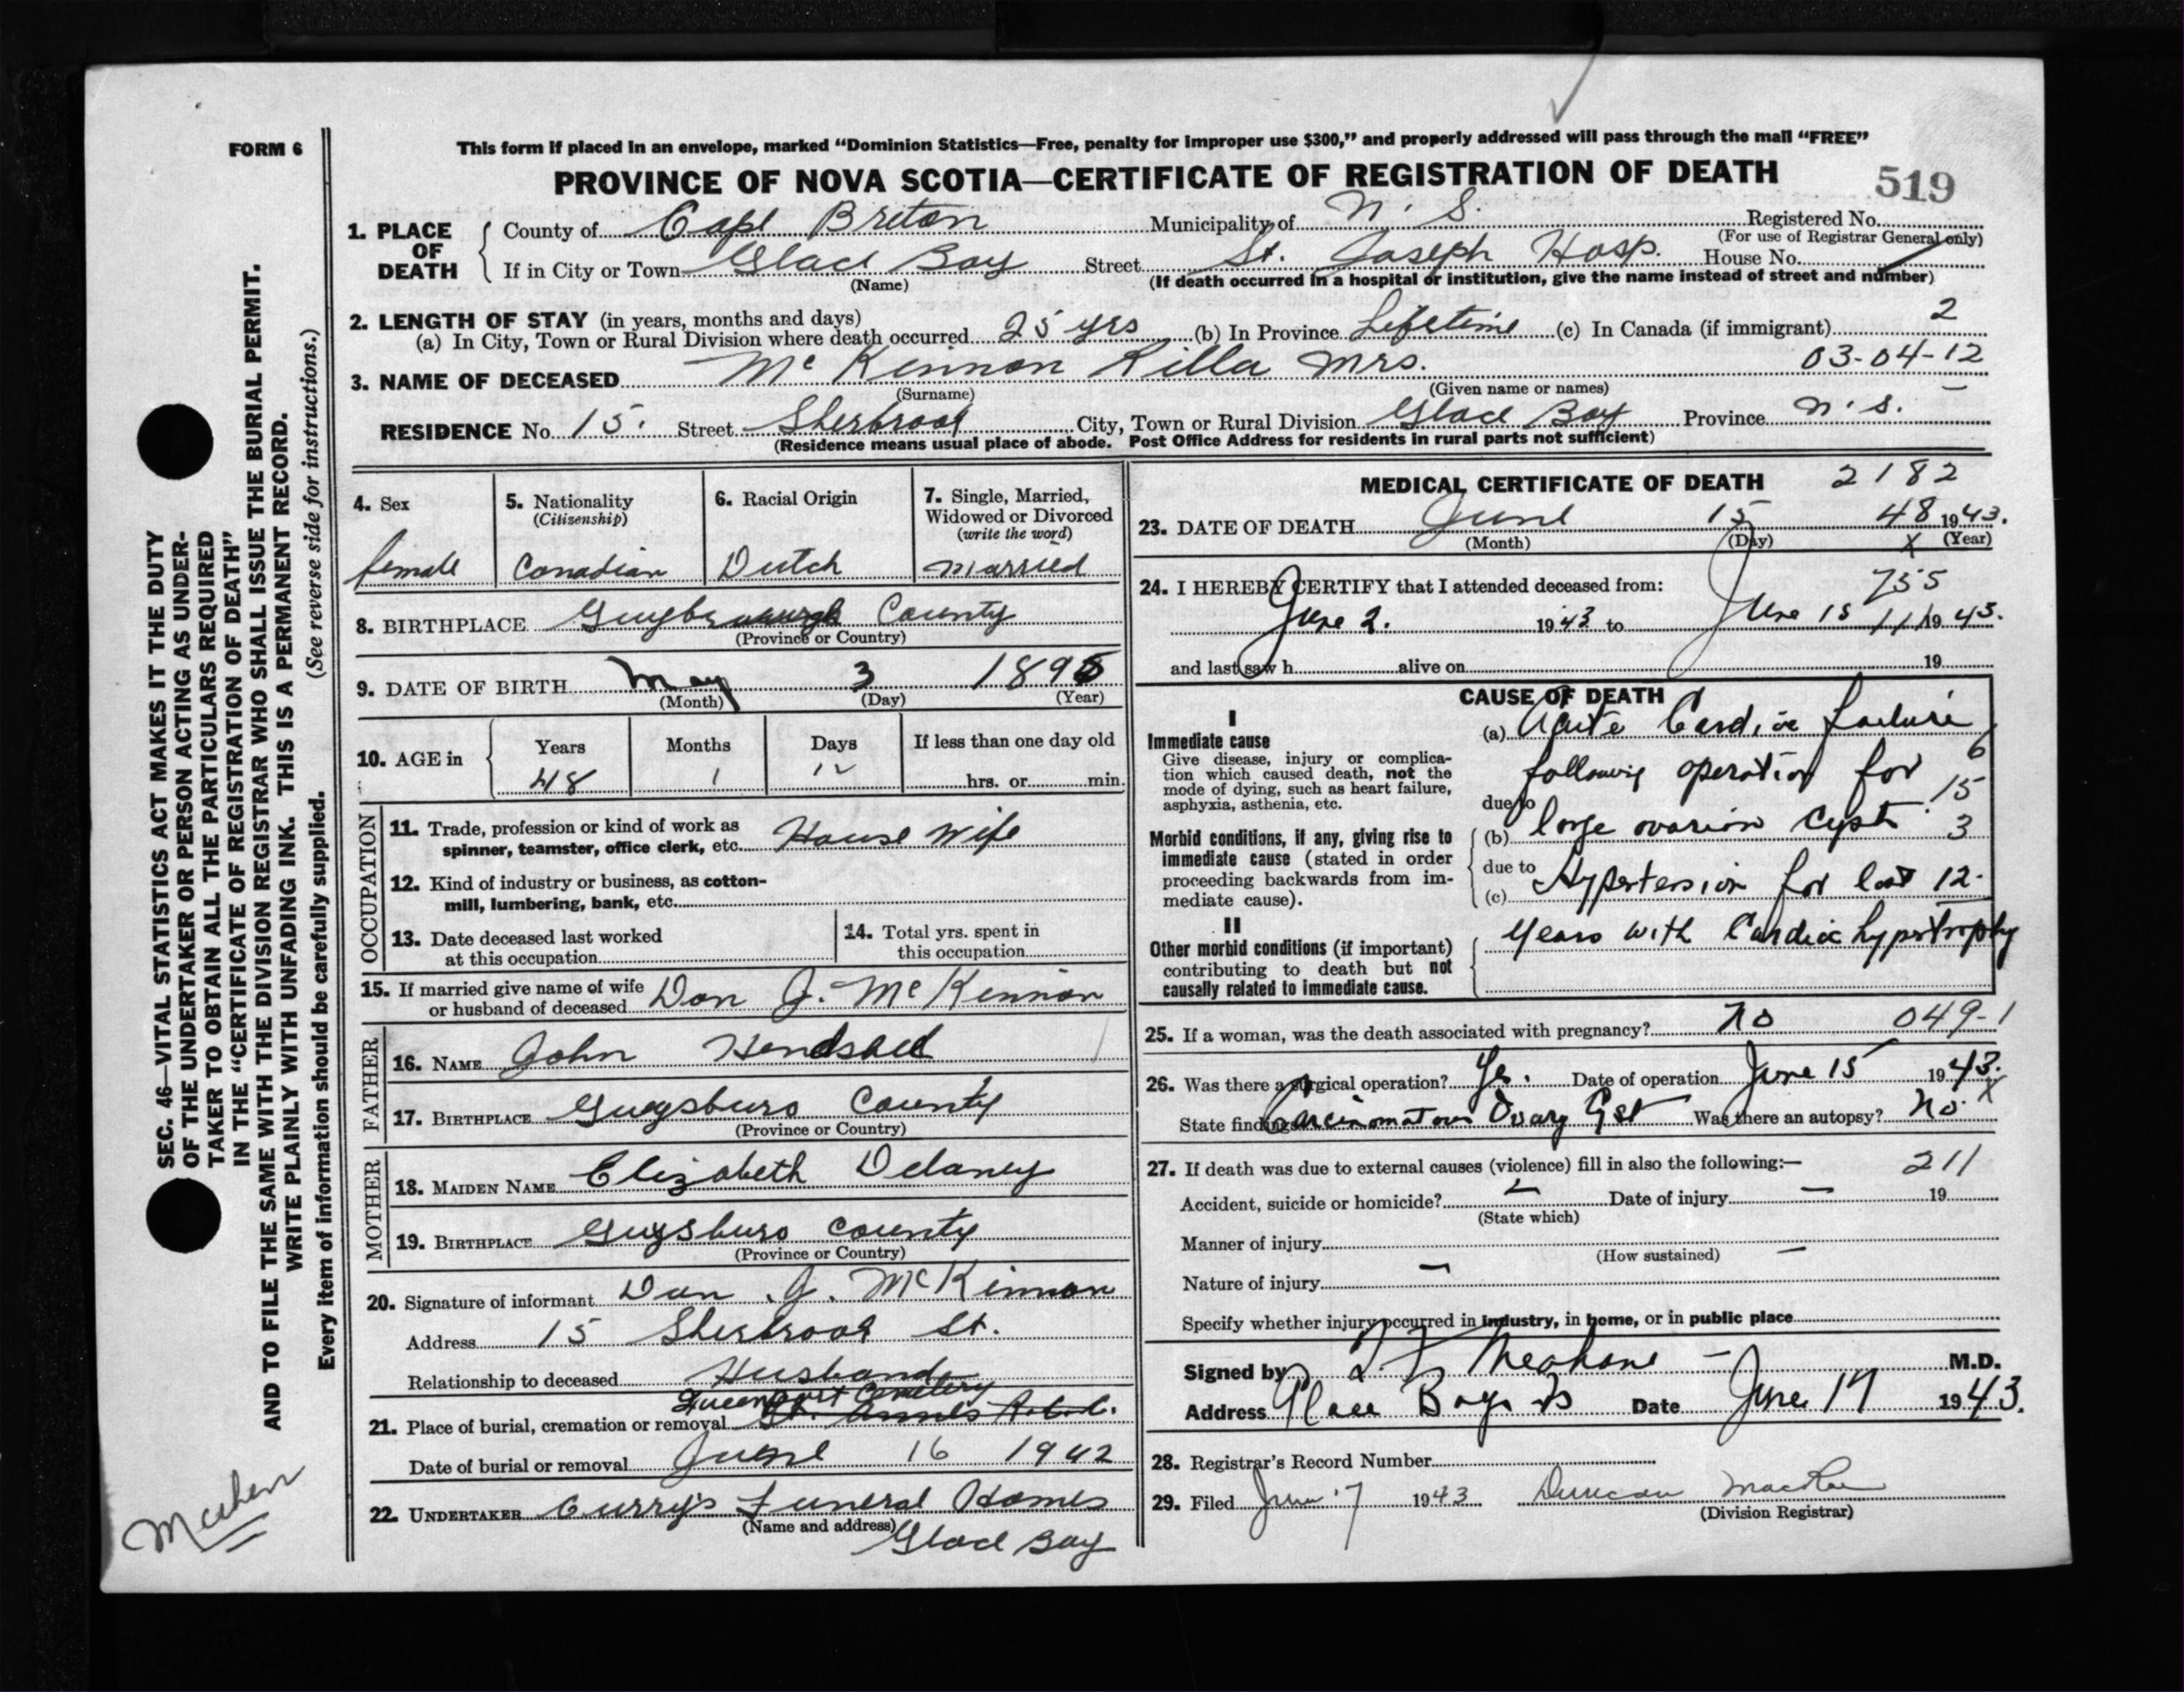 FORM 6
This form if placed in an envelope, marked "Dominion Statistics—Free, penalty for improper use $300," and properly addressed will pass through the mail "FREE"
PROVINCE OF NOVA SCOTIA—CERTIFICATE OF REGISTRATION OF DEATH
519
1. PLACE OF DEATH
County of Cape Breton Municipality of N. S. Registered No.
(For use of Registrar General only)
If in City or Town Glace Bay Street St. Joseph Hosp. House No.
(Name) (If death occurred in a hospital or institution, give the name instead of street and number)
2. LENGTH OF STAY (in years, months and days)
(a) In City, Town or Rural Division where death occurred 25 yrs (b) In Province Lifetime (c) In Canada (if immigrant) 2
3. NAME OF DECEASED McKinnon Rilla Mrs. 03-04-12
(Surname) (Given name or names)
RESIDENCE No. 15. Street City, Town or Rural Division Glace Bay Province N. S.
(Residence means usual place of abode. Post Office Address for residents in rural parts not sufficient)
4. Sex
female
5. Nationality
(Citizenship)
Canadian
6. Racial Origin
Dutch
7. Single, Married,
Widowed or Divorced
(write the word)
married
8. BIRTHPLACE County
(Province or Country)
9. DATE OF BIRTH May 3 1895
(Month) (Day) (Year)
10. AGE in
Years Months Days If less than one day old
48 1 12 hrs. or min.
OCCUPATION
11. Trade, profession or kind of work as
spinner, teamster, office clerk, etc. House Wife
12. Kind of industry or business, as cotton-
mill, lumbering, bank, etc.
13. Date deceased last worked
at this occupation
14. Total yrs. spent in
this occupation
15. If married give name of wife
or husband of deceased Dan J. McKinnon
FATHER
16. NAME John
17. BIRTHPLACE Guysburo County
(Province or Country)
MOTHER
18. MAIDEN NAME Elizabeth Delaney
19. BIRTHPLACE Guysburo County
(Province or Country)
20. Signature of informant Dan J. McKinnon
Address 15 St.
Relationship to deceased Husband
Cemetery
21. Place of burial, cremation or removal St. Annes R.C.C.
Date of burial or removal June 16 1942
22. UNDERTAKER Curry's Funeral Home
(Name and address)
Glace Bay
MEDICAL CERTIFICATE OF DEATH 2182
23. DATE OF DEATH June 15 48 1943.
(Month) (Day) X (Year)
24. I HEREBY CERTIFY that I attended deceased from: 755
June 2. 1943 to June 15 1943.
and last saw h alive on 19
CAUSE OF DEATH
I
Immediate cause
Give disease, injury or complica-
tion which caused death, not the
mode of dying, such as heart failure,
asphyxia, asthenia, etc.
(a) Acute Cardiac failure
following operation for 6
due to 15
Morbid conditions, if any, giving rise to
immediate cause (stated in order
proceeding backwards from im-
mediate cause).
(b) large ovarian cyst. 3
due to
(c) Hypertension for last 12
II
Other morbid conditions (if important)
contributing to death but not
causally related to immediate cause.
years with Cardiac hypertrophy
25. If a woman, was the death associated with pregnancy? no 049-1
26. Was there a surgical operation? Yes. Date of operation June 15 1943.
State findings Carcinomatous Ovary Cyst Was there an autopsy? No X
27. If death was due to external causes (violence) fill in also the following:— 211
Accident, suicide or homicide? – Date of injury – 19
(State which)
Manner of injury
(How sustained) –
Nature of injury –
Specify whether injury occurred in industry, in home, or in public place
Signed by M.D.
Address Glace Bay NS Date June 17 1943.
28. Registrar's Record Number
29. Filed June 17 1943 Duncan MacRae
(Division Registrar)
SEC. 46—VITAL STATISTICS ACT MAKES IT THE DUTY
OF THE UNDERTAKER OR PERSON ACTING AS UNDER-
TAKER TO OBTAIN ALL THE PARTICULARS REQUIRED
IN THE "CERTIFICATE OF REGISTRATION OF DEATH"
AND TO FILE THE SAME WITH THE DIVISION REGISTRAR WHO SHALL ISSUE THE BURIAL PERMIT.
WRITE PLAINLY WITH UNFADING INK. THIS IS A PERMANENT RECORD.
(See reverse side for instructions.)
Every item of information should be carefully supplied.